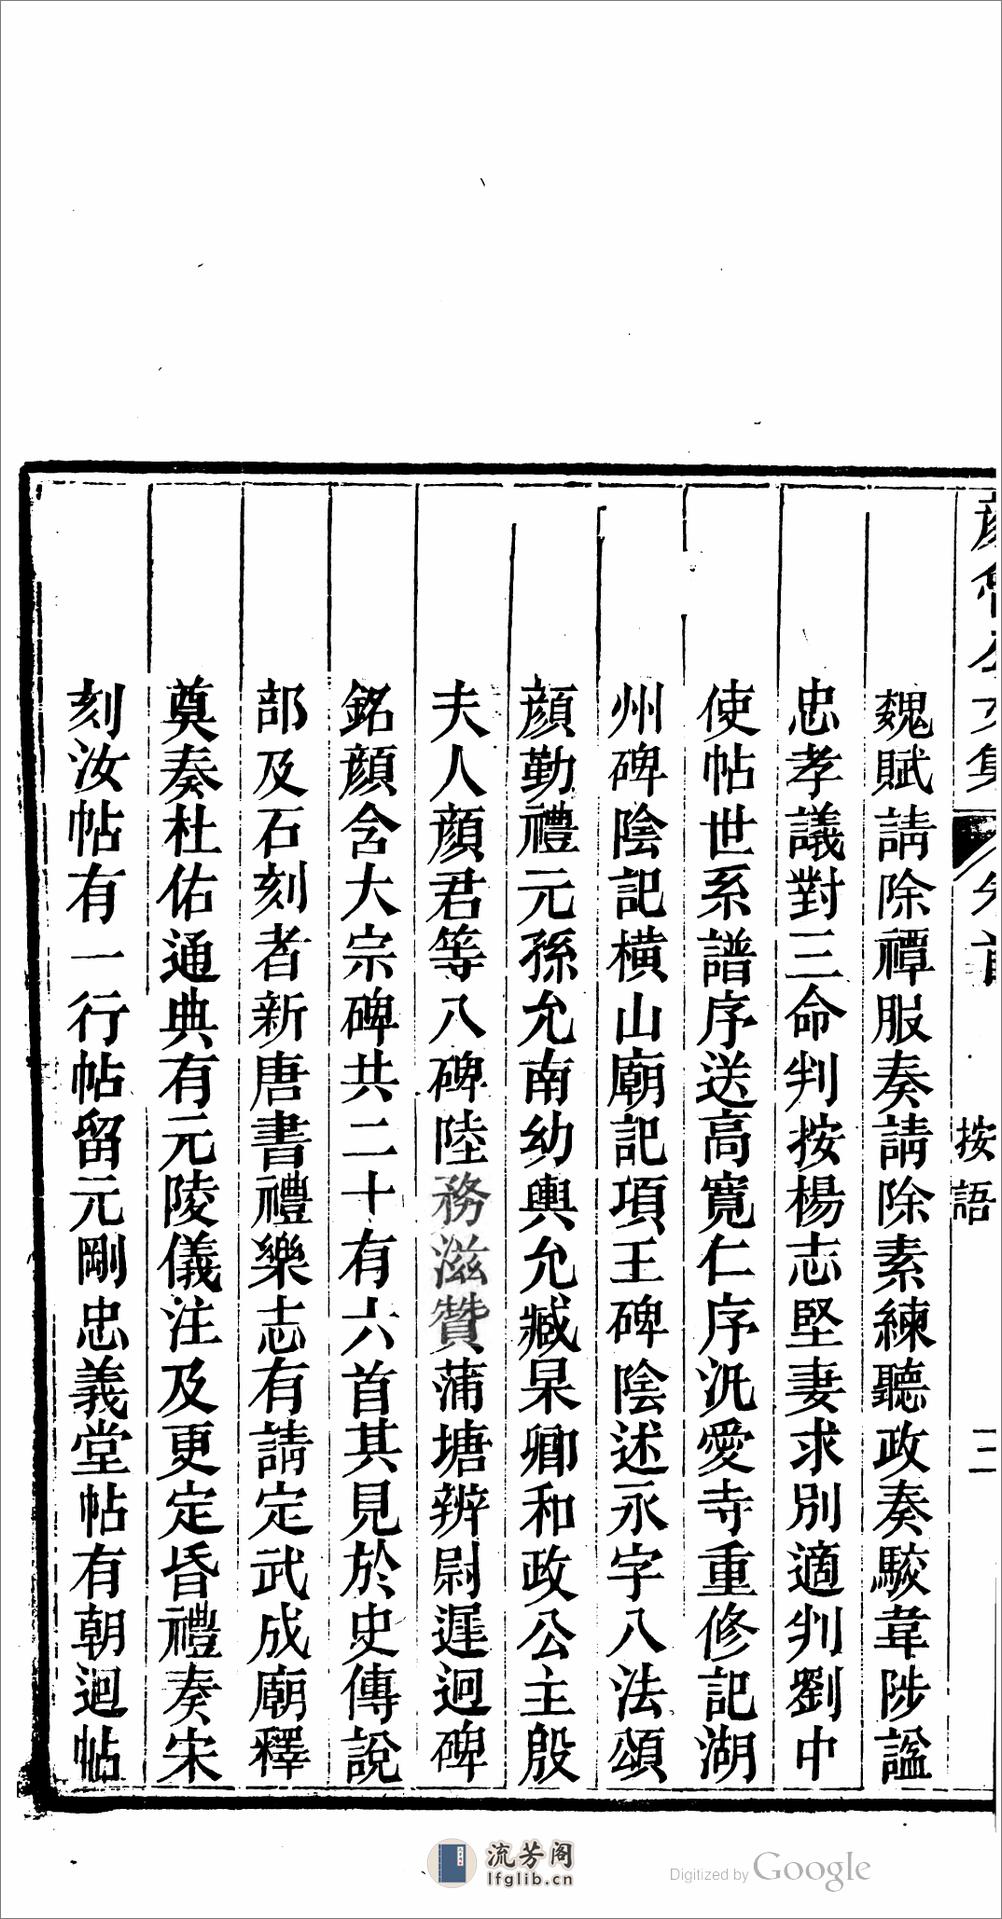 顏魯公文集 卷首 按語 二
魏賦請除禫服奏請除素練聽政奏駮韋陟謚
忠孝議對三命判按楊志堅妻求別適判劉中
使帖世系譜序送高寛仁序汎愛寺重修記湖
州碑陰記橫山廟記項王碑陰述永字八法頌
顔勤禮元孫允南幼輿允臧杲卿和政公主殷
夫人顔君等八碑陸務滋贊蒲塘辨尉遲迥碑
銘顔含大宗碑共二十有六首其見於史傳說
部及石刻者新唐書禮樂志有請定武成廟釋
奠奏杜佑通典有元陵儀注及更定昏禮奏宋
刻汝帖有一行帖留元剛忠義堂帖有朝迴帖
流芳阁
lfglib.cn
Digitized by Google